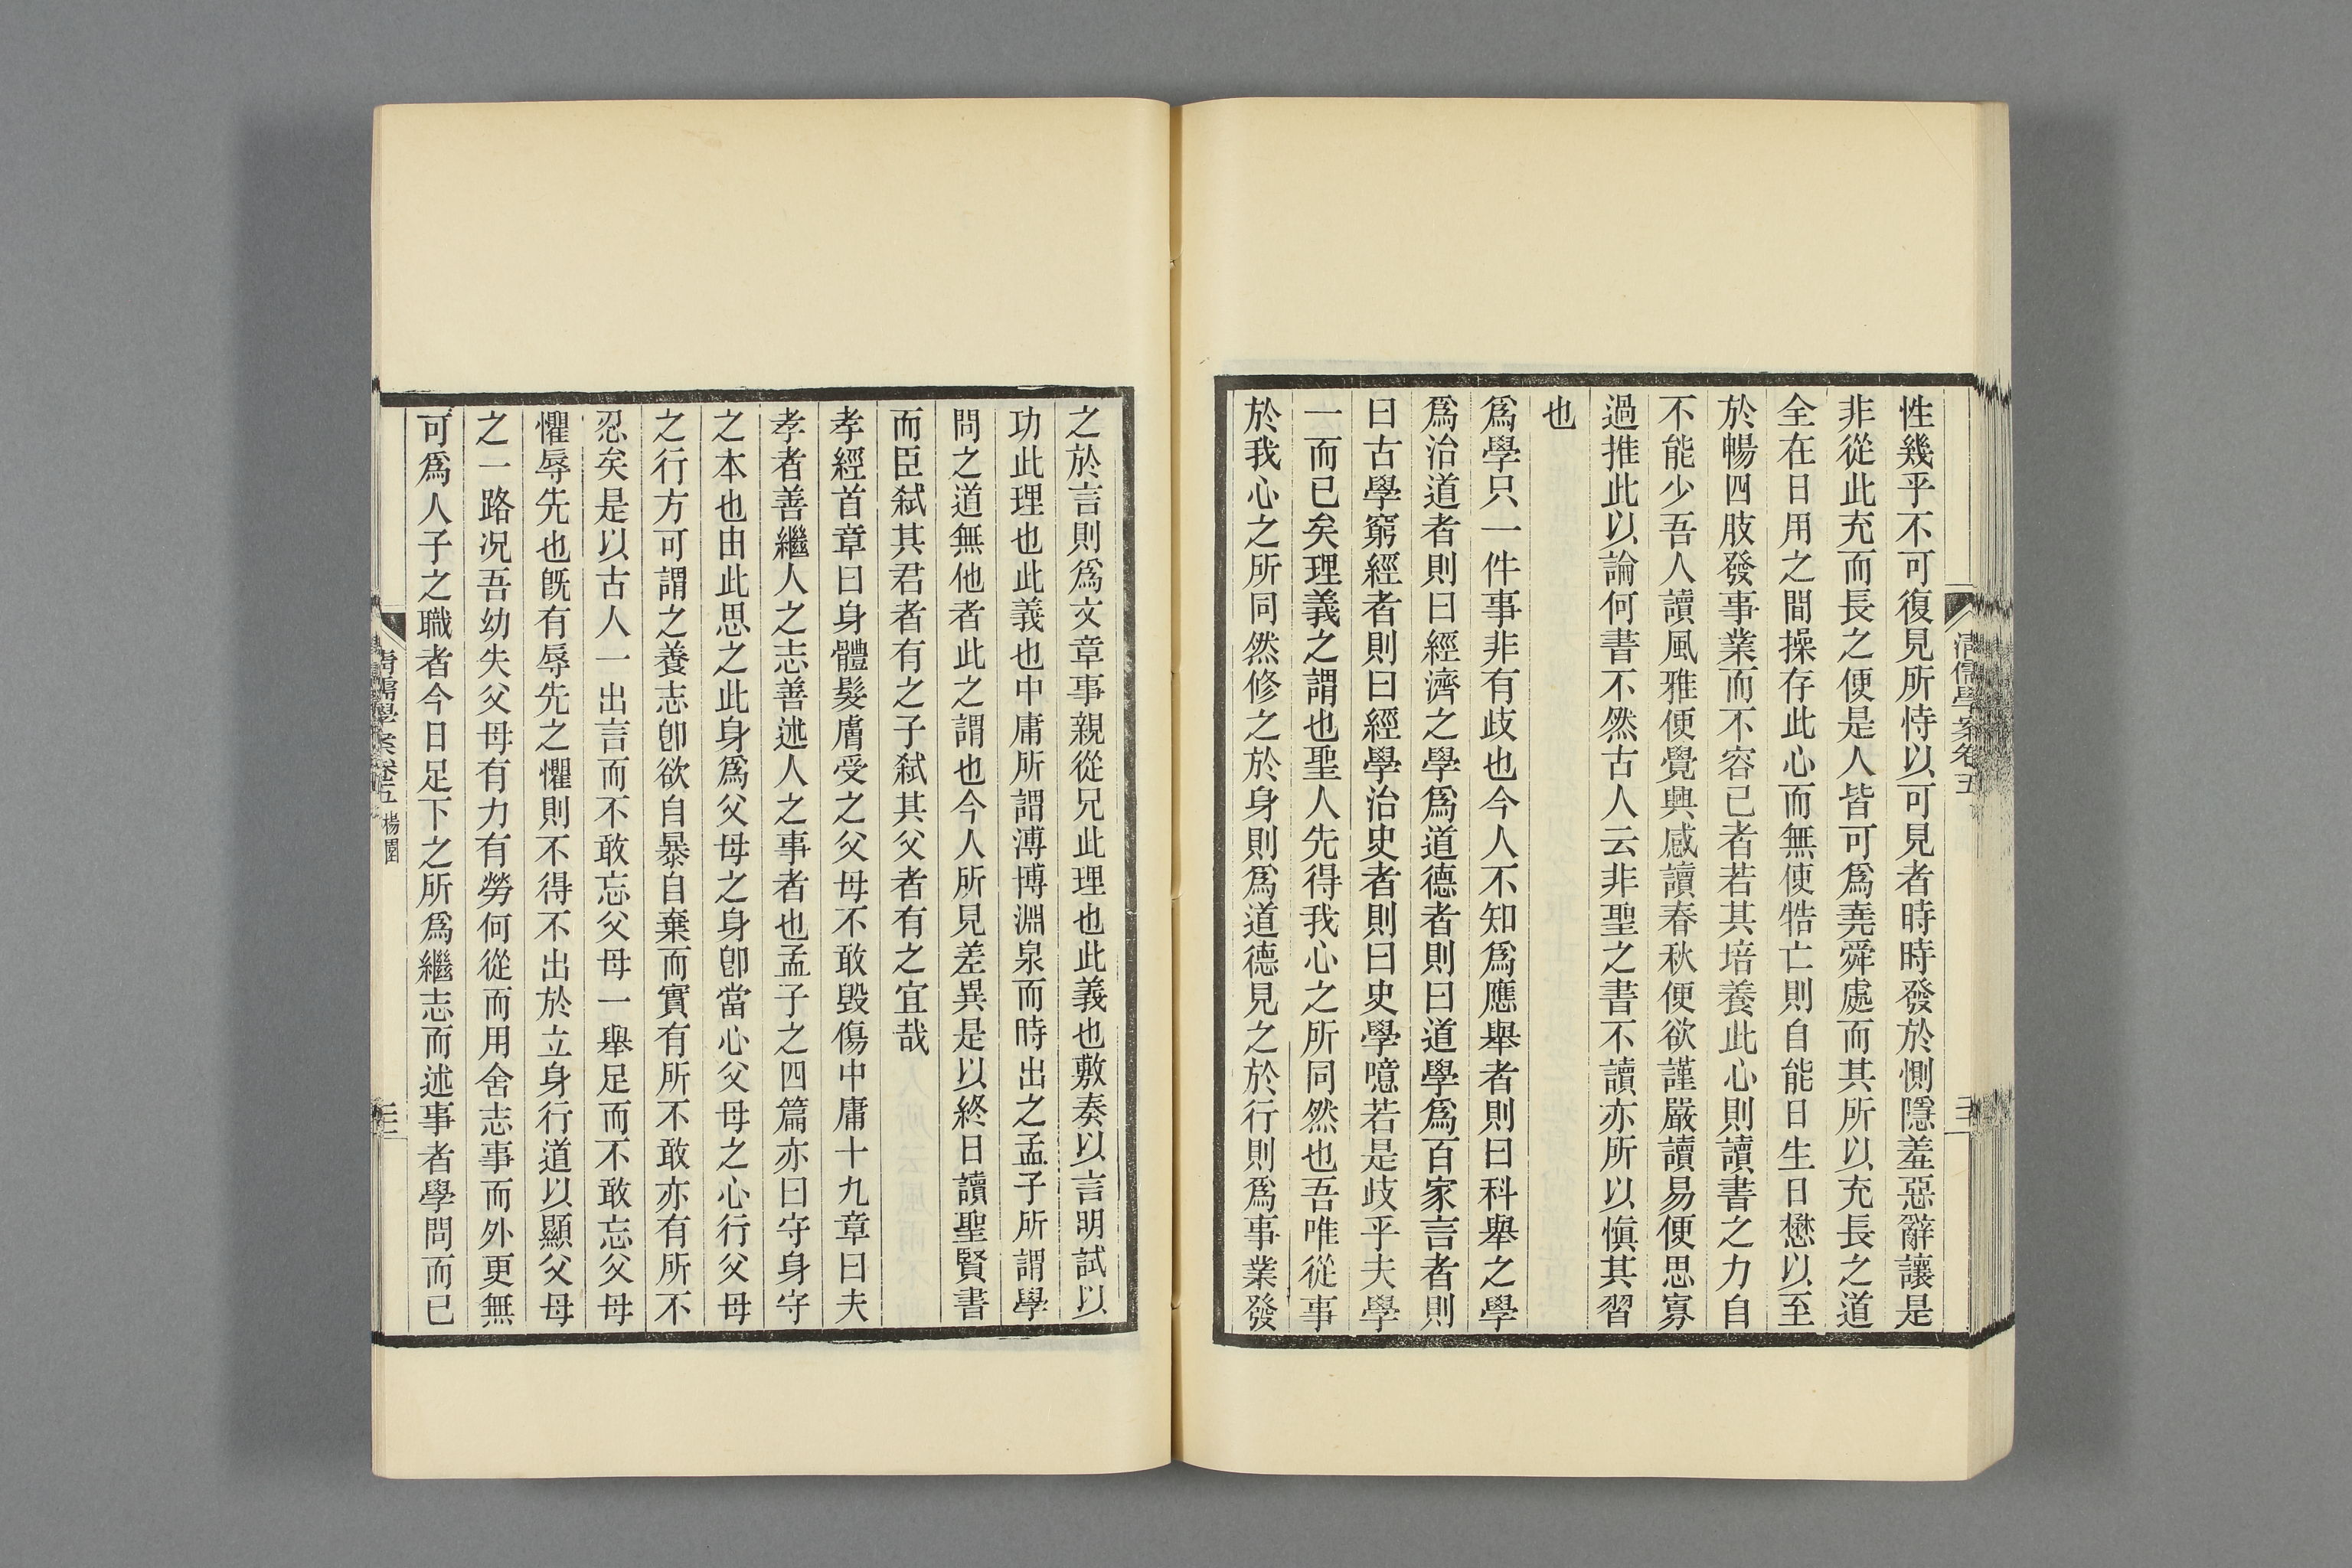 清儒學案卷五
性幾乎不可復見所恃以可見者時時發於惻隱羞惡辭讓是
非從此充而長之便是人皆可爲堯舜處而其所以充長之道
全在日用之間操存此心而無使牿亡則自能日生日懋以至
於暢四肢發事業而不容已者若其培養此心則讀書之力自
不能少吾人讀風雅便覺興感讀春秋便欲謹嚴讀易便思寡
過推此以論何書不然古人云非聖之書不讀亦所以愼其習
也
爲學只一件事非有歧也今人不知爲應舉者則曰科舉之學
爲治道者則曰經濟之學爲道德者則曰道學爲百家言者則
曰古學窮經者則曰經學治史者則曰史學噫若是歧乎夫學
一而已矣理義之謂也聖人先得我心之所同然也吾唯從事
於我心之所同然修之於身則爲道德見之於行則爲事業發
之於言則爲文章事親從兄此理也此義也敷奏以言明試以
功此理也此義也中庸所謂溥博淵泉而時出之孟子所謂學
問之道無他者此之謂也今人所見差異是以終日讀聖賢書
而臣弑其君者有之子弑其父者有之宜哉
孝經首章曰身體髮膚受之父母不敢毀傷中庸十九章曰夫
孝者善繼人之志善述人之事者也孟子之四篇亦曰守身守
之本也由此思之此身爲父母之身卽當心父母之心行父母
之行方可謂之養志卽欲自暴自棄而實有所不敢亦有所不
忍矣是以古人一出言而不敢忘父母一舉足而不敢忘父母
懼辱先也旣有辱先之懼則不得不出於立身行道以顯父母
之一路况吾幼失父母有力有勞何從而用舍志事而外更無
可爲人子之職者今日足下之所爲繼志而述事者學問而已
清儒學案卷五 楊園